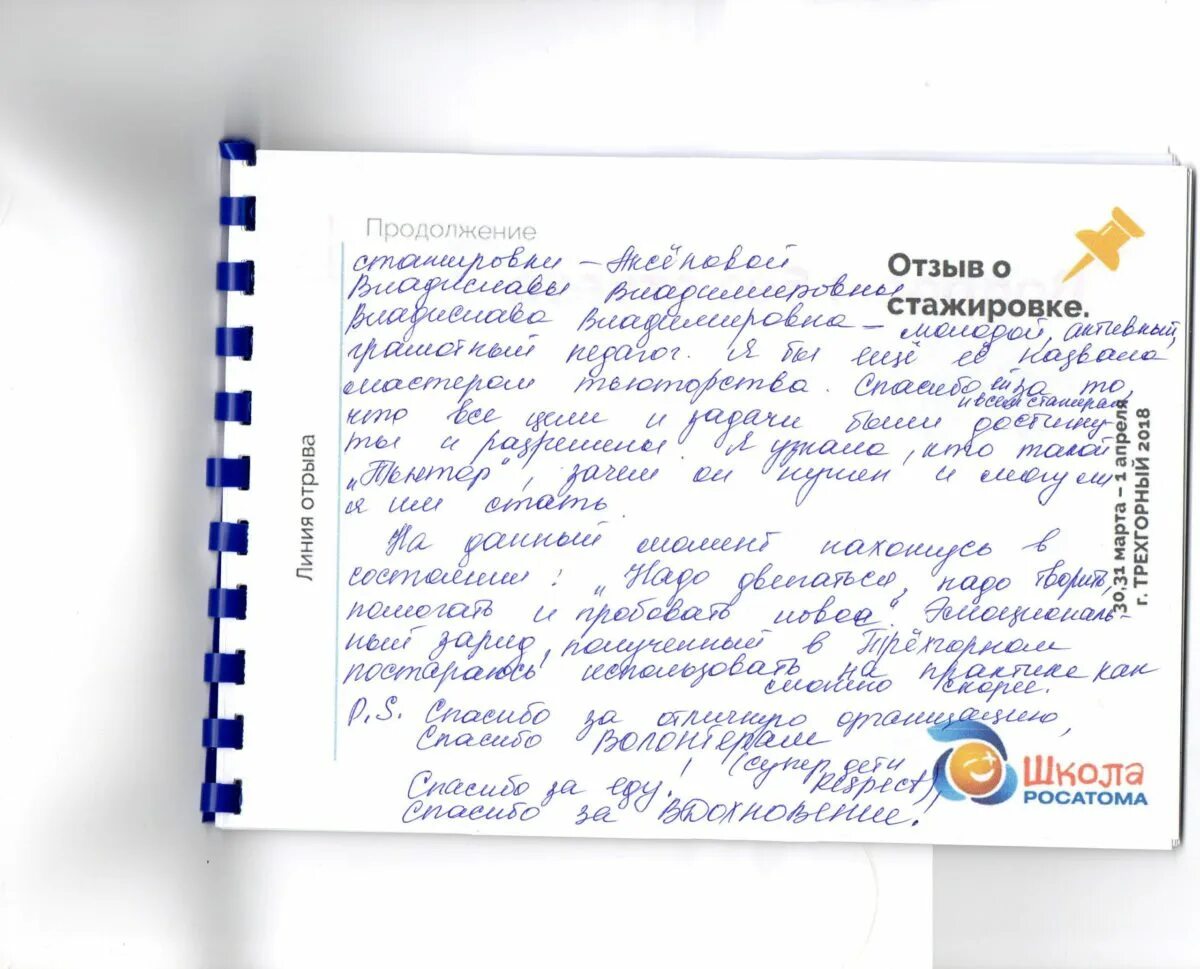 Продолжение
Отзыв о
стажировке.
стажировки – Аксёновой
Владиславы Владимировны
Владислава Владимировна – молодой, активный,
грамотный педагог. Я бы ещё её назвала
мастером тьюторства. Спасибо ей за то,
и всем стажёрам
что все цели и задачи были достигну
ты и разрешены. Я узнала, кто такой
„Тьютор", зачем он нужен и могу ли
я им стать.
На данный момент нахожусь в
состоянии: „Надо двигаться, надо творить,
помогать и пробовать новое". Эмоциональ-
ный заряд, полученный в Трёхгорном
постараюсь использовать на практике как
можно скорее.
P.S. Спасибо за отличную организацию,
Спасибо Волонтёрам
(супер дети
Respect)
Спасибо за еду!
Спасибо за Вдохновение!
Линия отрыва
30,31 марта – 1 апреля
г. ТРЕХГОРНЫЙ 2018
Школа
РОСАТОМА